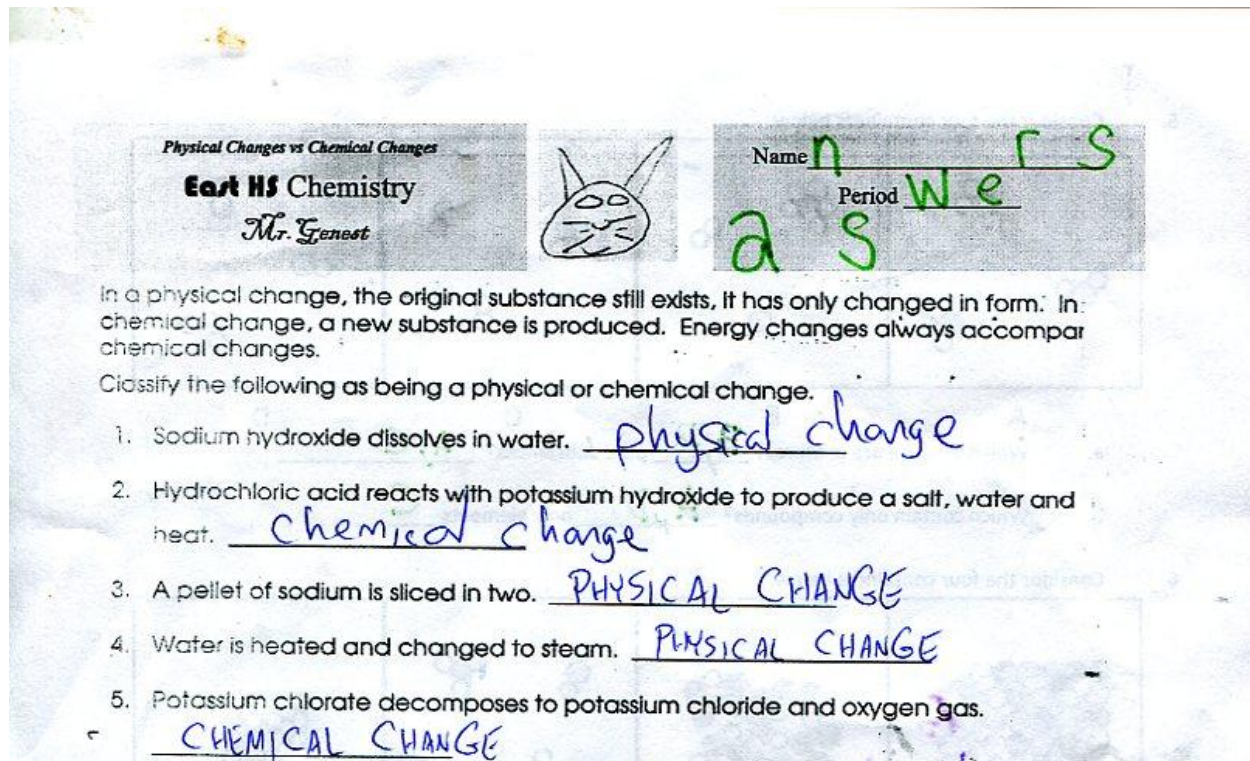 Physical Changes vs Chemical Changes
East HS Chemistry
Mr. Genest
Name n r s
Period W e
a s
In a physical change, the original substance still exists, it has only changed in form. In
chemical change, a new substance is produced. Energy changes always accompar
chemical changes.
Classify the following as being a physical or chemical change.
1. Sodium hydroxide dissolves in water. physical change
2. Hydrochloric acid reacts with potassium hydroxide to produce a salt, water and
heat. Chemical change
3. A pellet of sodium is sliced in two. PHYSICAL CHANGE
4. Water is heated and changed to steam. PHYSICAL CHANGE
5. Potassium chlorate decomposes to potassium chloride and oxygen gas.
CHEMICAL CHANGE